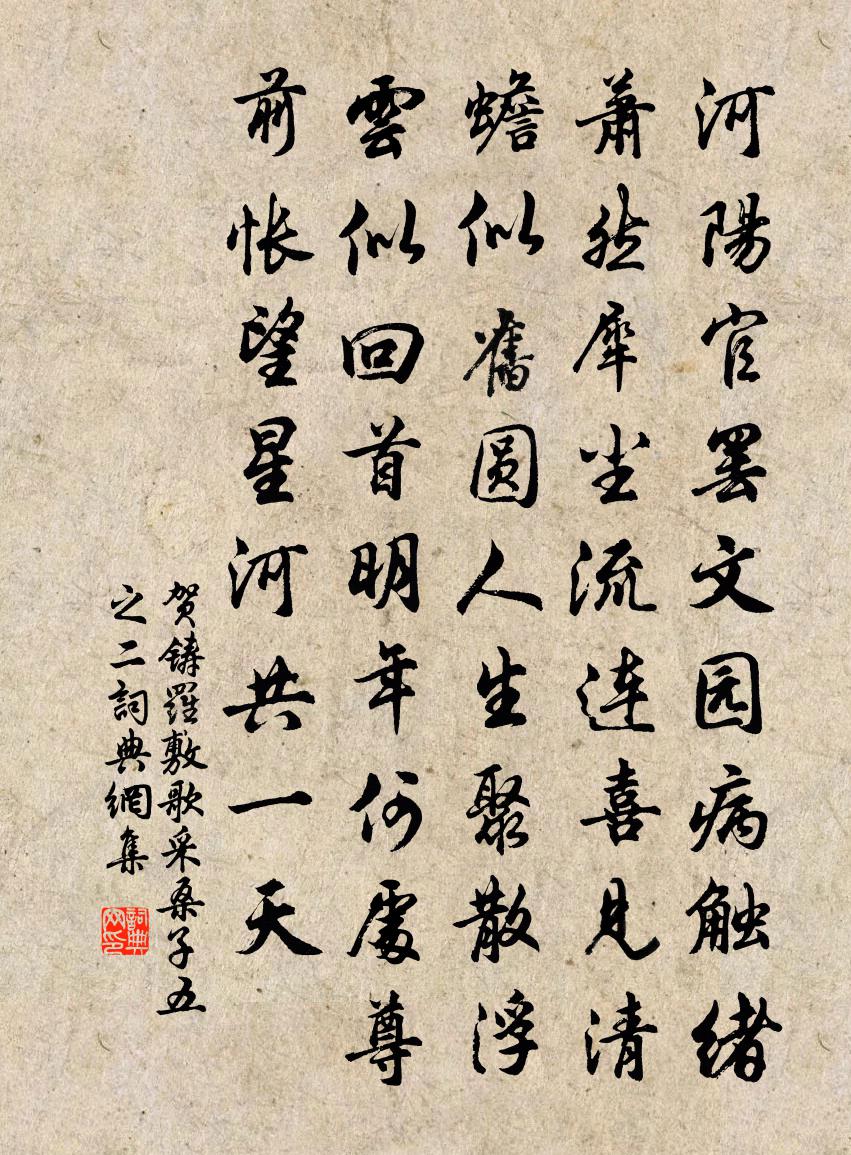 河陽官罢文园病触绪
蕭然犀尘流連喜見清
蟾似舊圆人生聚散浮
雲似回首明年何處尊
前悵望星河共一天
贺鋳羅敷歌采桑子五
之二詞典網集
詞典網印